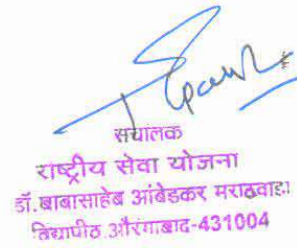 संचालक
राष्ट्रीय सेवा योजना
डॉ.बाबासाहेब आंबेडकर मराठवाडा
विद्यापीठ औरंगाबाद-431004